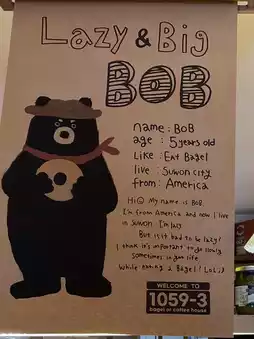 Lazy & Big
BOB
name : BOB
age : 5 years old
Like : Eat Bagel
live : Suwon city
from : America
Hi☺ My name is BOB.
I'm from America and now I live
in Suwon I'm lazy
But is it bad to be lazy?
I think it's important to go slowly
sometimes in your life
While eating a Bagel! LoL;)
WELCOME TO
1059-3
bagel & coffee house